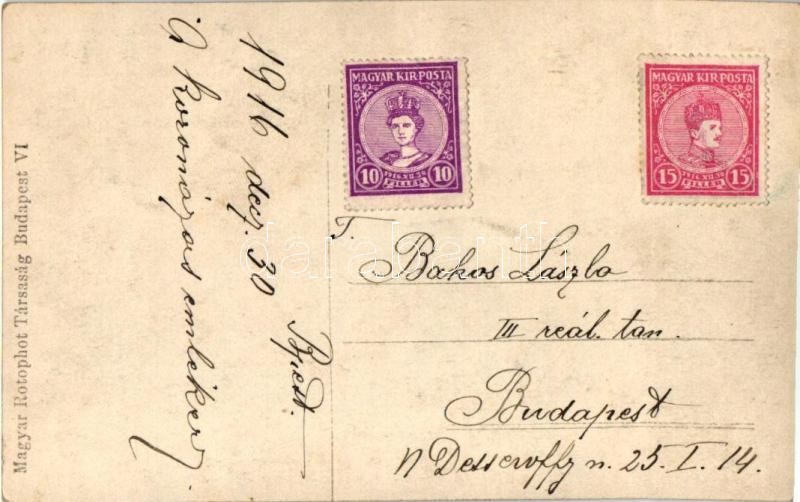 Magyar Rotophot Társaság Budapest VI
A koronázás emlékére
1916 decz. 30
Bpest.
MAGYAR KIR POSTA
10 1916.XII.30 10
FILLÉR
MAGYAR KIR POSTA
15 1916.XII.30 15
FILLÉR
T.
Bakos László
III reál. tan.
Budapest
N Dessewffy u. 25. I. 14.
darabanth